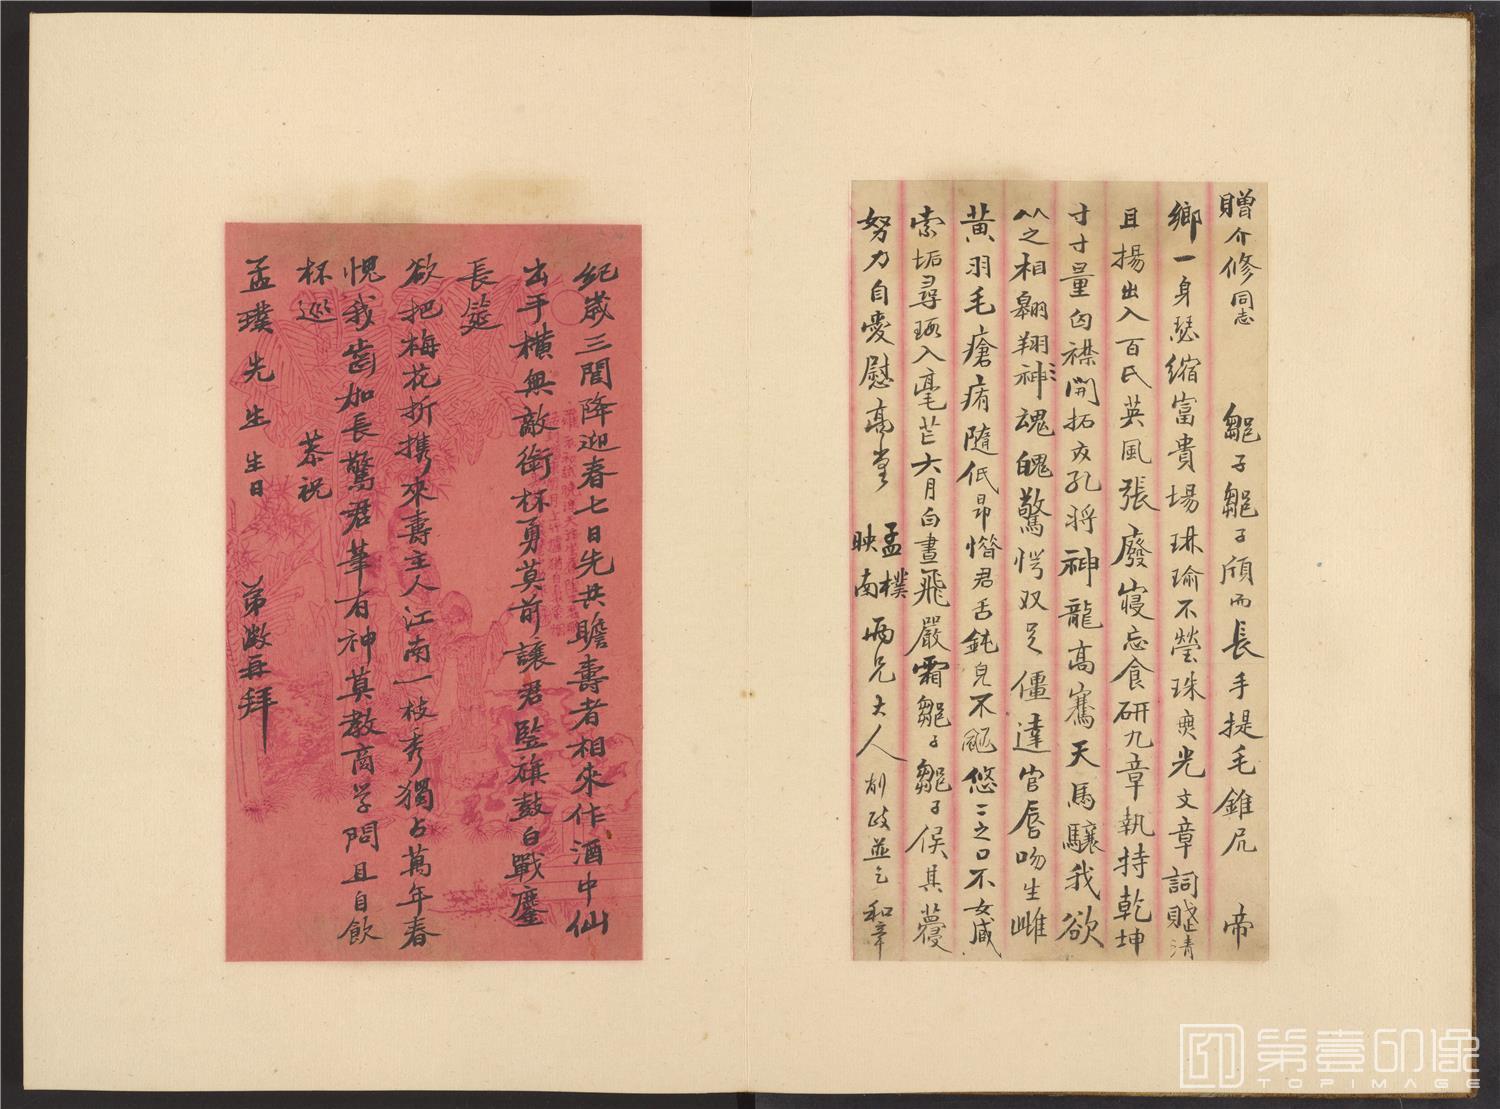 贈介修同志　雛子雛子頎而長手提毛錐尻帝
鄉一身瑟縮富貴場琳瑜不瑩珠夷光文章詞賦清
且揚出入百氏英風張廢寢忘食研九章執持乾坤
寸寸量囟襟開拓友孔將神龍高騫天馬驤我欲
从之相翱翔神魂魄驚愕奴足僵達官唇吻生雌
黄羽毛瘡痏隨低昂惜君舌鈍兒不颬悠ミ之口不女咸
索垢尋瑕入毫芒六月白晝飛嚴霜雛子雛子俟其蘉
努力自愛慰高堂　孟樸映南兩兄大人削政並乞和章
紀歲三閏降迎春七日先共瞻壽者相來作酒中仙
出手橫無敵銜杯勇莫前讓君監旗鼓白戰鏖
長筵
欲把梅花折攜來壽主人江南一枝秀獨占萬年春
愧我齒加長驚君筆有神莫教商學問且自飲
杯巡　恭祝
孟璞先生生日　弟澂再拜
第壹印像
TOPIMAGE